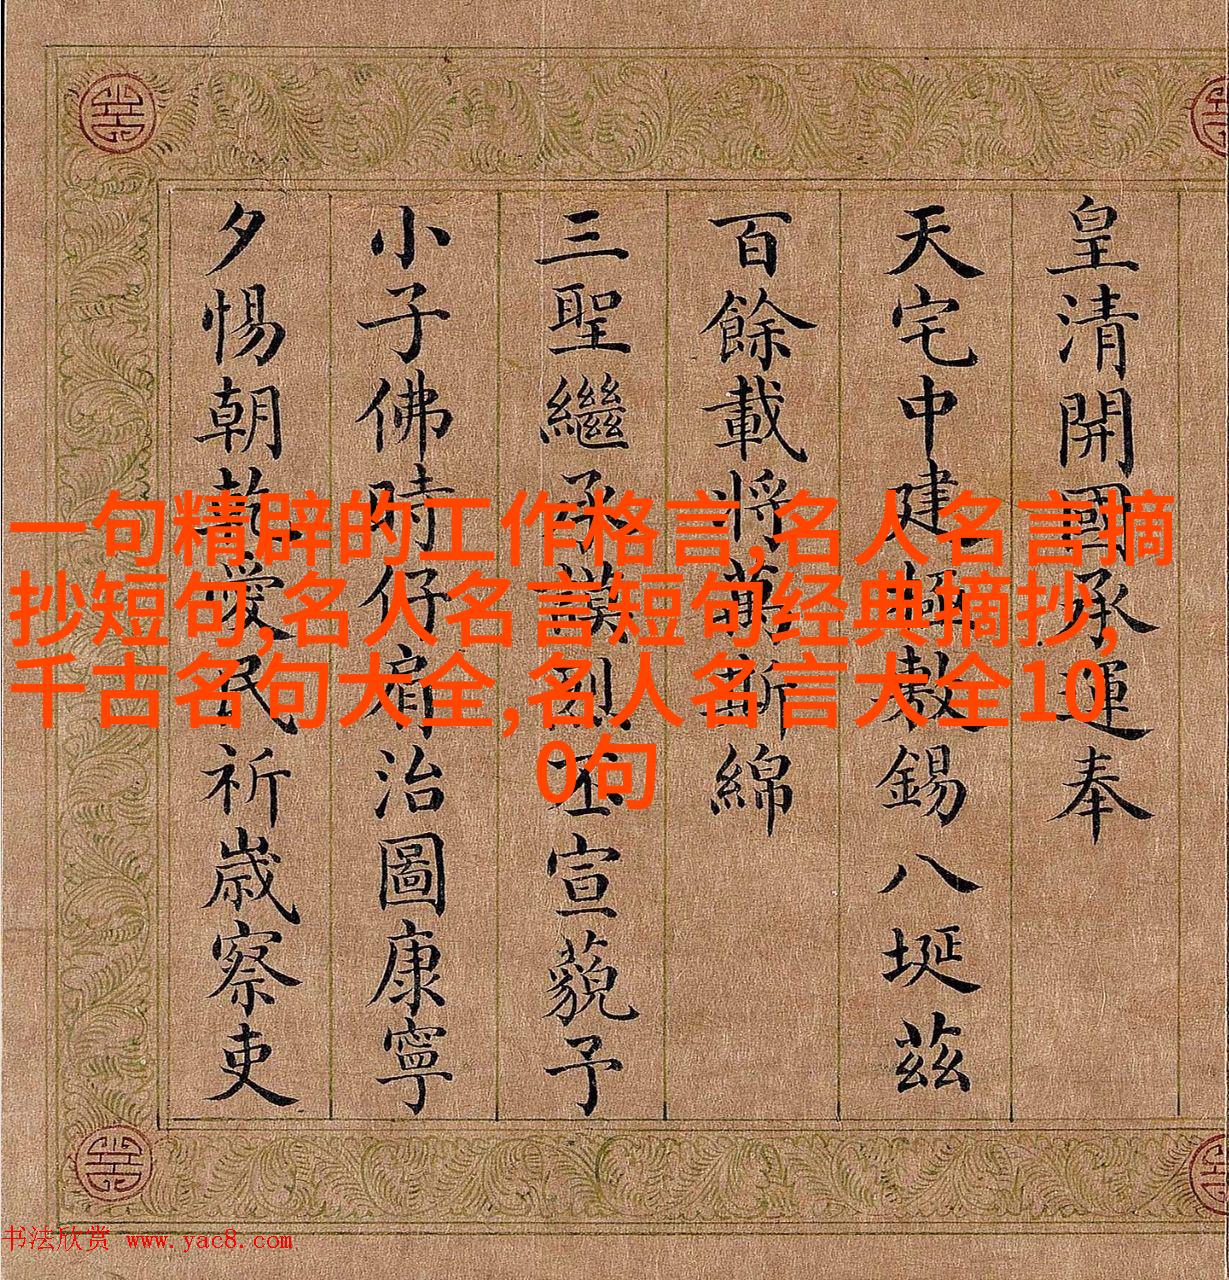 皇清開國承運奉
天宅中建極敷錫八埏茲
百餘載將萬斯綿
三聖繼承謨烈丕宣藐予
小子佛時仔肩治圖康寧
夕惕朝乾愛民祈歲察吏
一句精辟的工作格言,名人名言摘
抄短句,名人名言短句经典摘抄,
千古名句大全,名人名言大全10
0句
书法欣赏 www.yac8.com